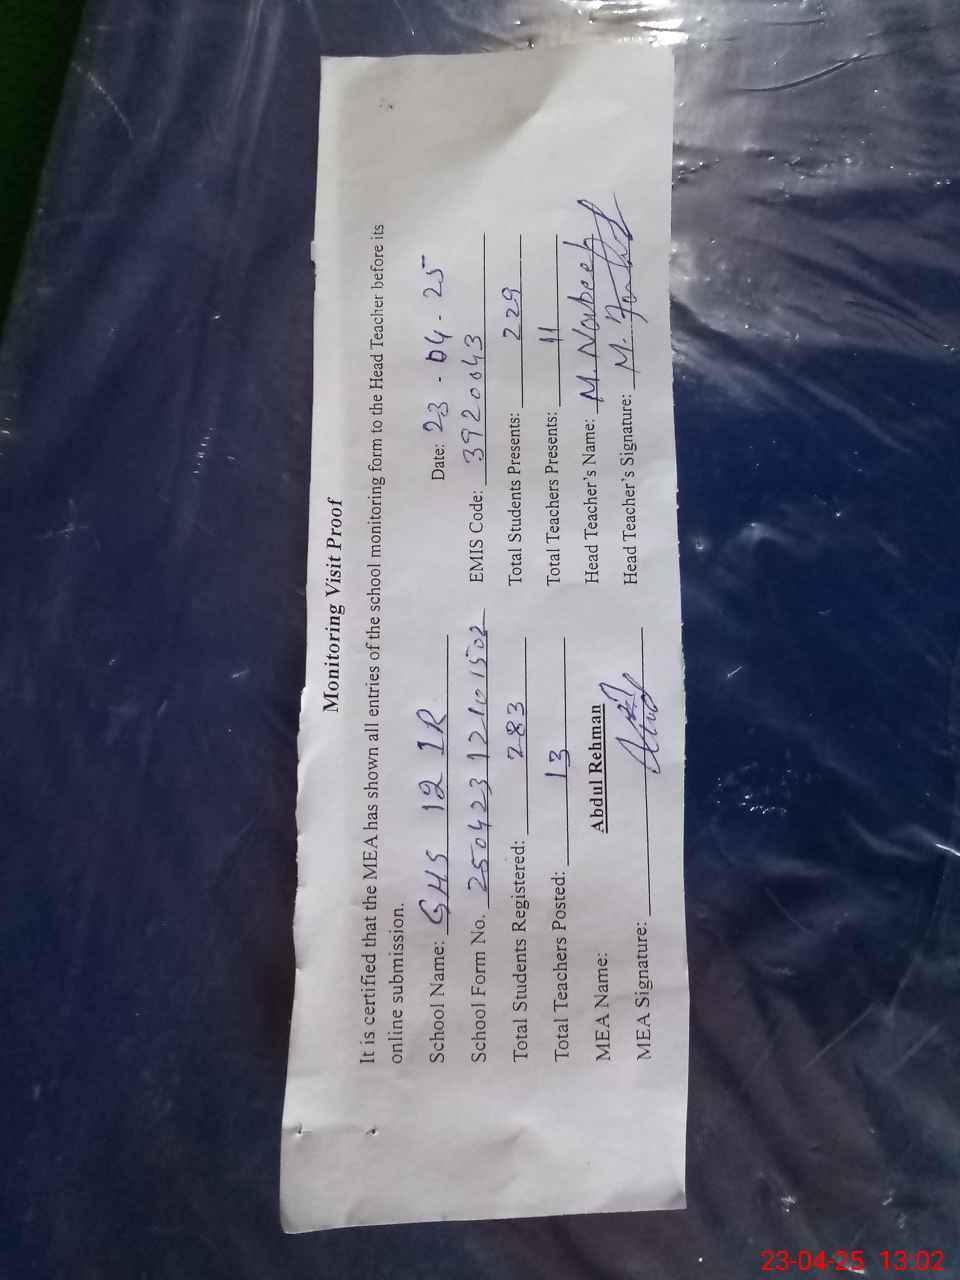 Monitoring Visit Proof
It is certified that the MEA has shown all entries of the school monitoring form to the Head Teacher before its
online submission.
School Name: GHS 12 1R Date: 23-04-25
School Form No. EMIS Code: 3920043
Total Students Registered: 283 Total Students Presents: 229
Total Teachers Posted: 13 Total Teachers Presents: 11
MEA Name: Abdul Rehman Head Teacher's Name: M.
MEA Signature: Head Teacher's Signature: M.
23-04-25 13:02